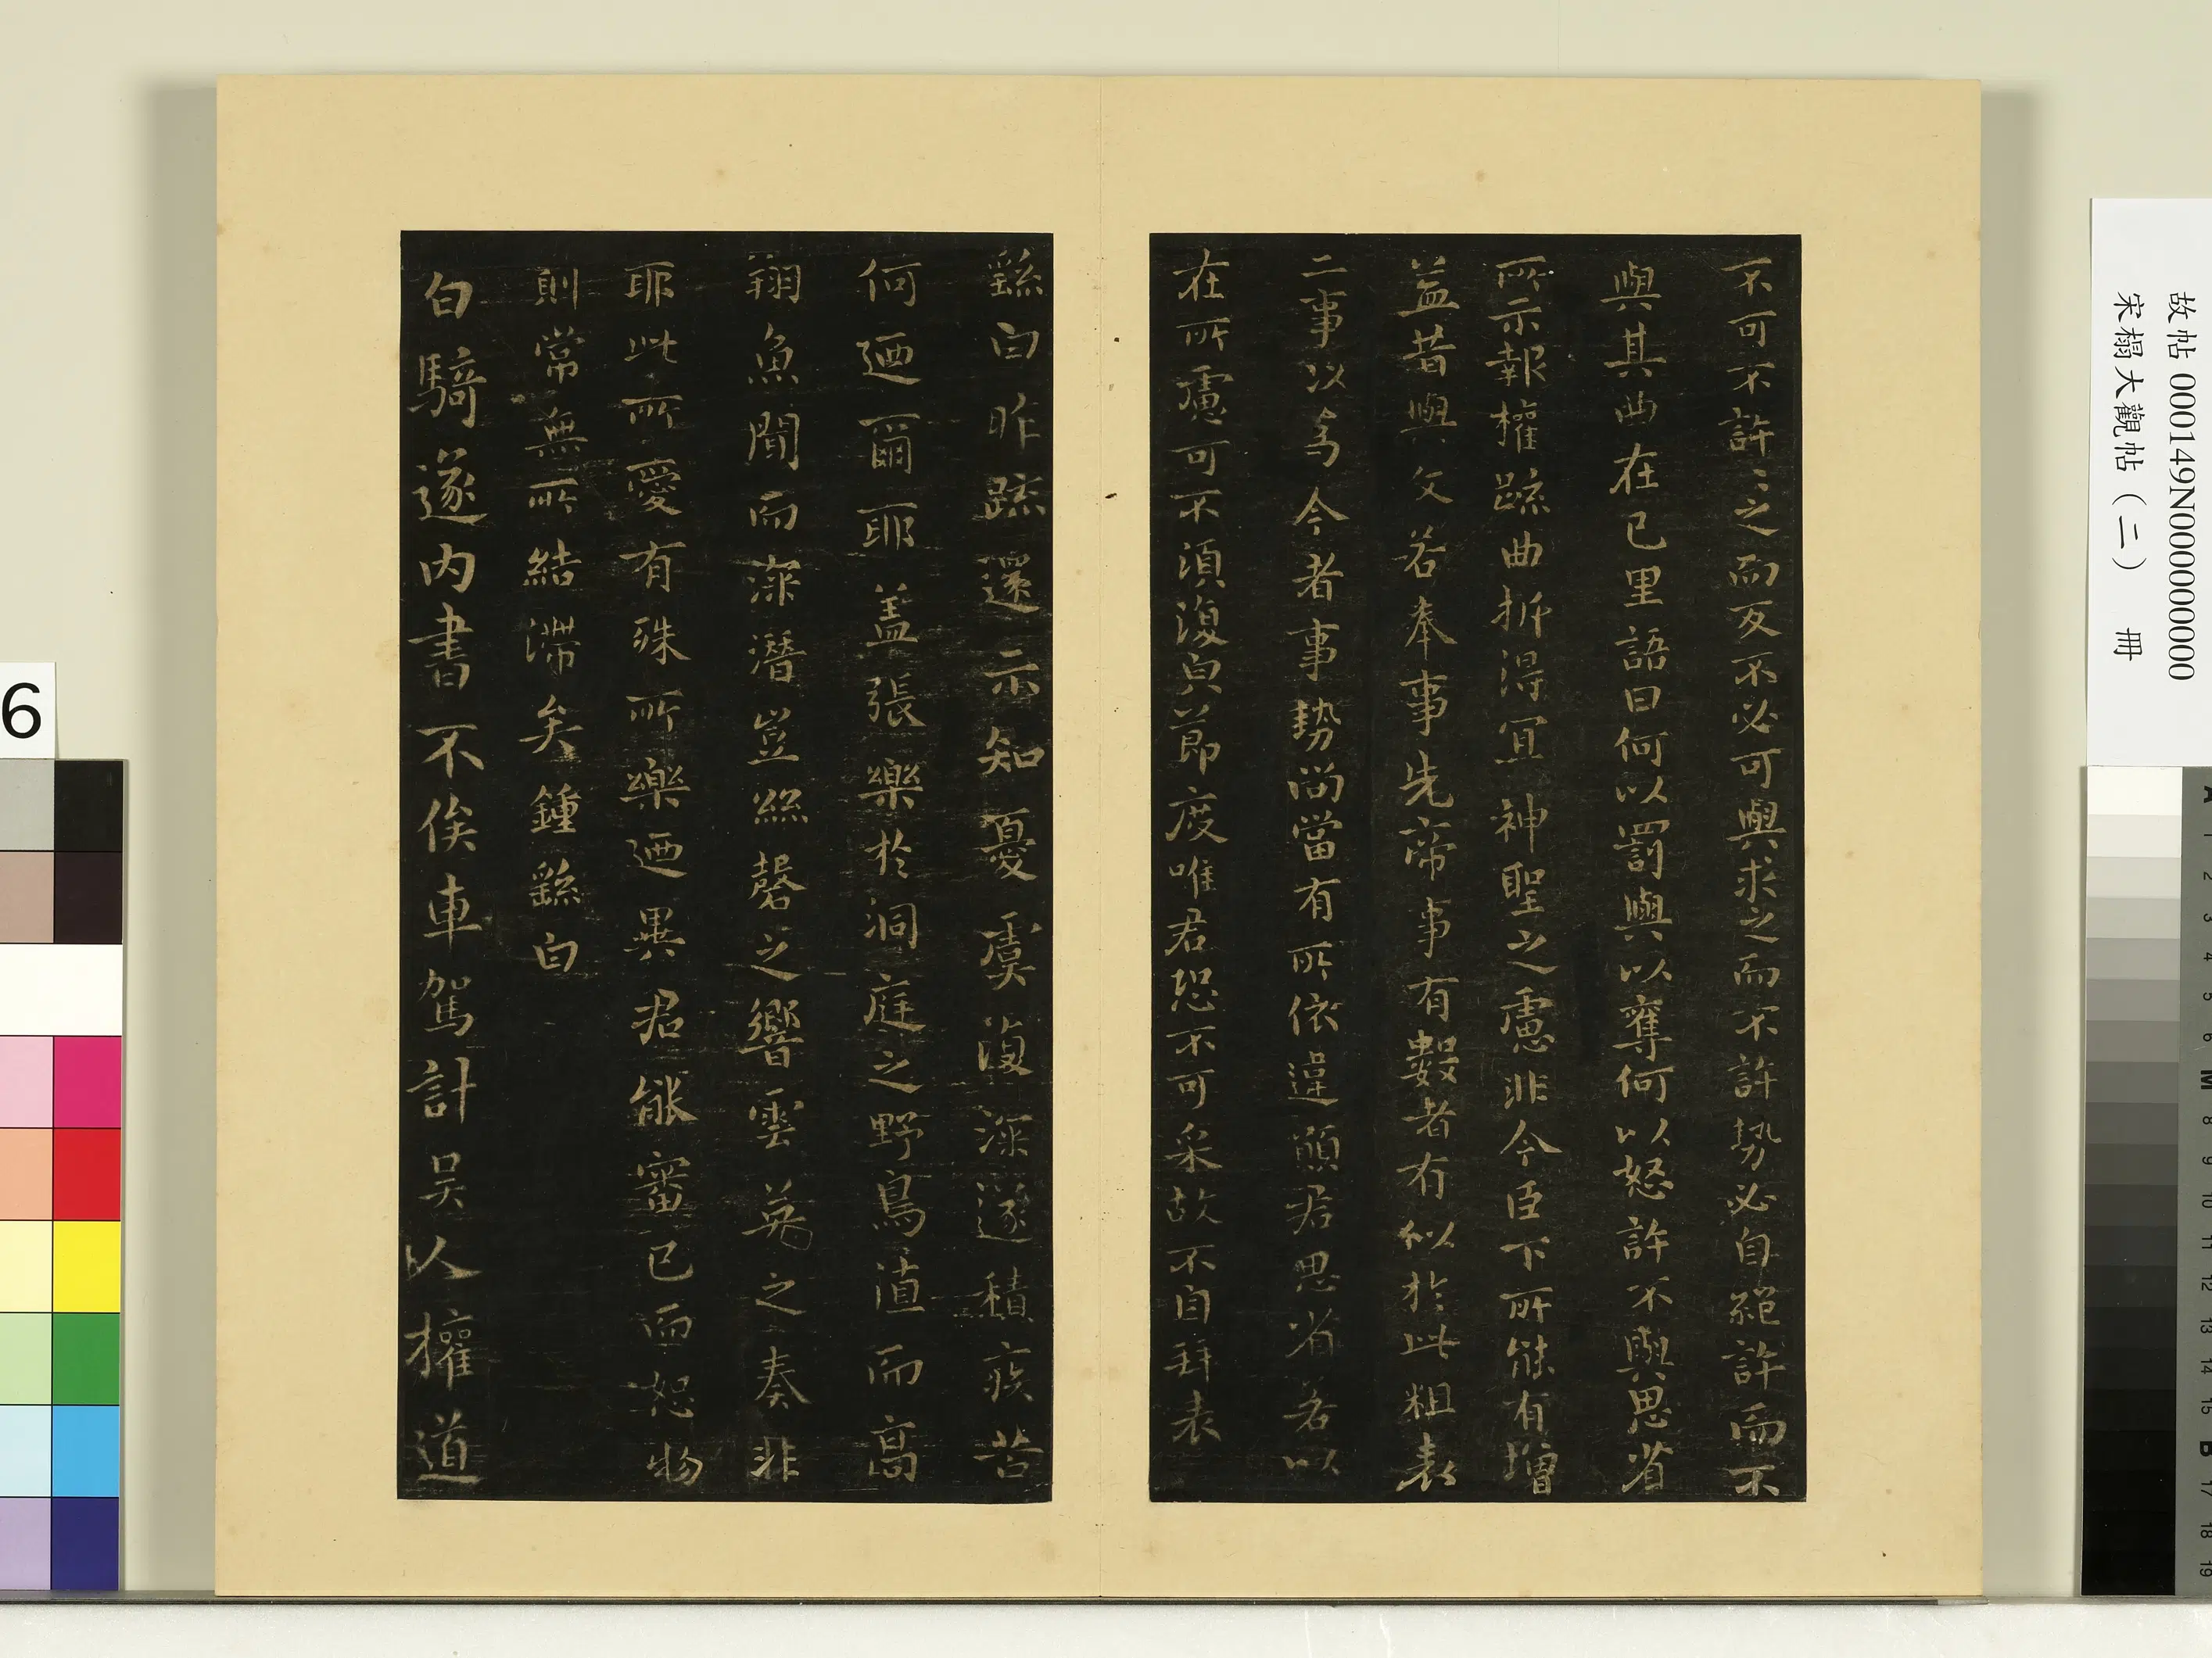 不可不許〻之而反不必可與求之而不許勢必自絕許而不
與其曲在己里語曰何以罰與以奪何以怒許不與思省
所示報權疏曲折得宜神聖之慮非今臣下所能有增
益昔與文若奉事先帝事有數者有似於此粗表
二事以為今者事勢尚當有所依違願君思省若以
在所慮可不須復貞節度唯君恐不可采故不自拜表
繇白昨疏還示知憂虞復深遂積疾苦
何迺爾耶蓋張樂於洞庭之野鳥值而高
翔魚聞而深潛豈絲磬之響雲英之奏非
耶此所愛有殊所樂迺異君能審己而恕物
則常無所結滯矣鍾繇白
白騎遂內書不俟車駕計吳人權道
故帖 000149N000000000
宋榻大觀帖（二） 冊
6
A 1 2 3 4 5 6 M 8 9 10 11 12 13 14 15 B 17 18 19